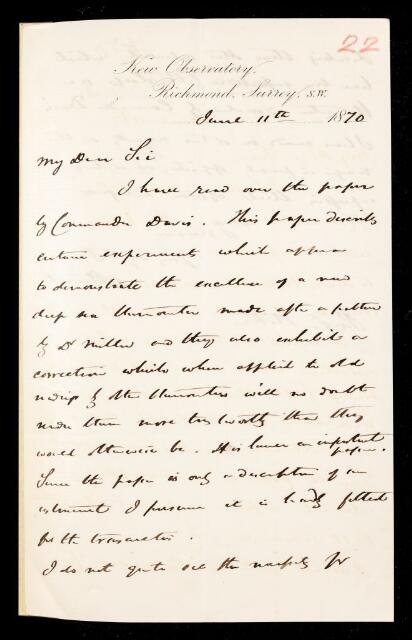 22
Kew Observatory,
Richmond, Surrey, S.W.
June 11th 1870
My Dear Sir
I have read over the paper
by Commander Davis. This paper describes
certain experiments which appear
to demonstrate the excellence of a new
deep sea thermometer made after a pattern
by Dr Miller and they also exhibit a
correction which when applied to old
readings of other thermometers will no doubt
render them more trustworthy than they
would otherwise be. It is hence an important
paper.
Since the paper is only a description of an
instrument I presume it is hardly fitted
for the transactions.
I do not quite see the necessity for